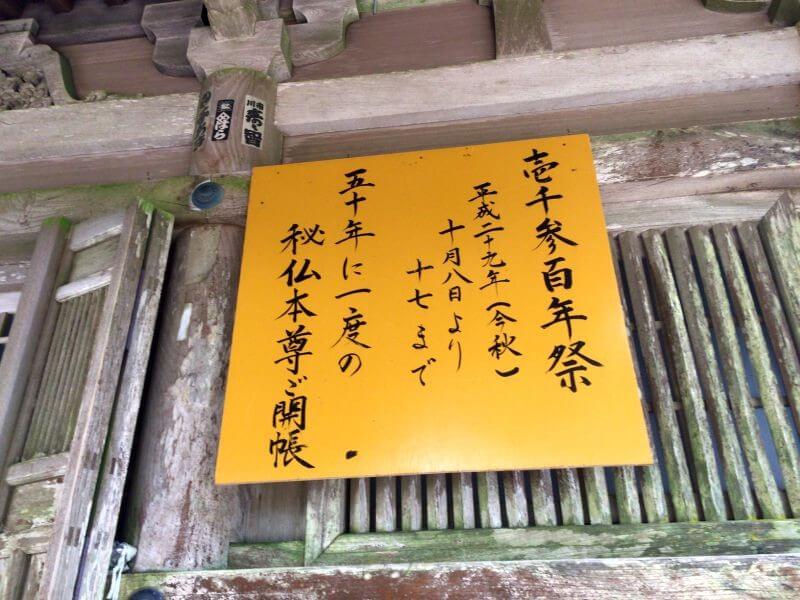 壱千参百年祭
平成二十九年(今秋)
十月八日より
十七まで
五十年に一度の
秘仏本尊ご開帳